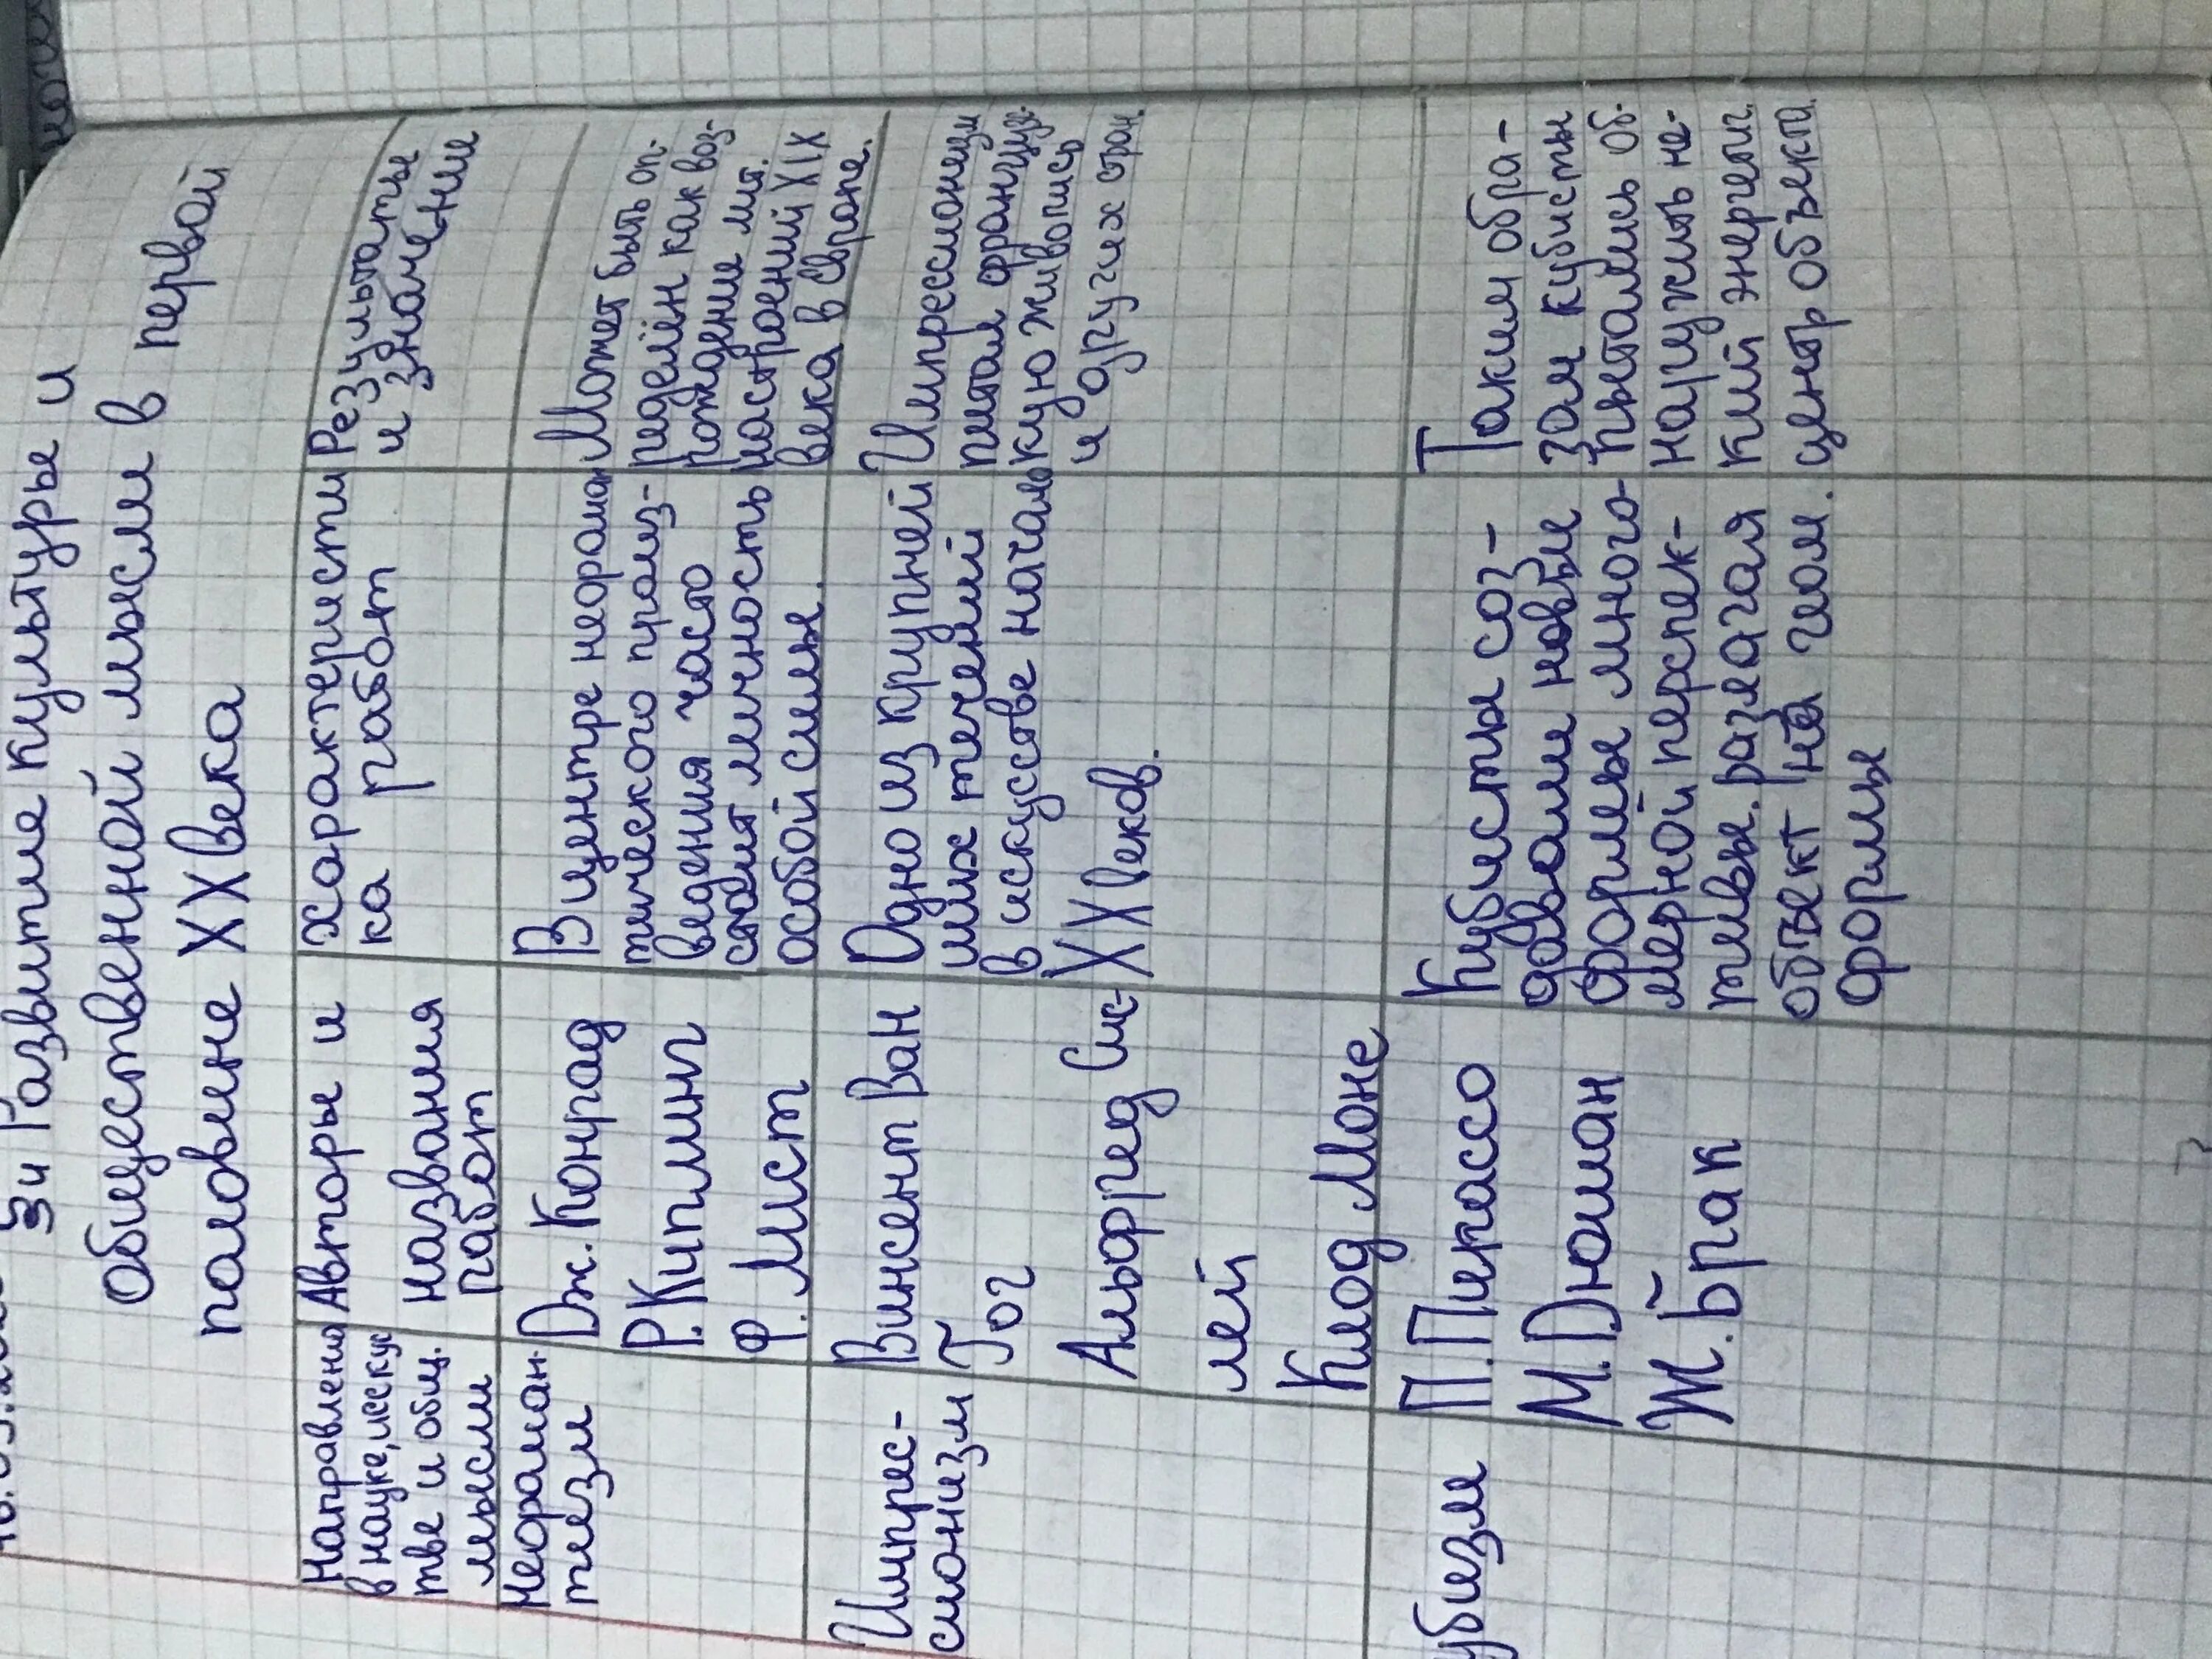 Развитие культуры и
общественной мысли в первой
половине XX века
Направлено
в науке, искус
тве и общ.
мысли
Авторы и
названия
работ
Характеристи
ка работ
Результаты
и значение
Неороман
тизм
Дж. Конрад
Р. Киплинг
Ф. Лист
В центре неороман
тического произ-
ведения часто
стоит личность
особой силы.
Может быть оп-
ределён как воз-
рождение лит.
настроений XIX
века в Европе.
Импрес-
сионизм
Винсент Ван
Гог
Альфред Сис-
лей
Клод Моне
Одно из крупней
ших течений
в искусстве начало
XX веков.
Импрессионизм
питал француз-
кую живопись
и других стран.
убизм
П. Пикассо
М. Дюшан
Ж. Брак
Кубисты соз-
давали новые
формы много-
мерной перспек-
тивы. разлагая
объект на геом.
формы
Таким обра-
зом кубисты
пытались об-
наружить не-
кий энергети.
центр объекта.